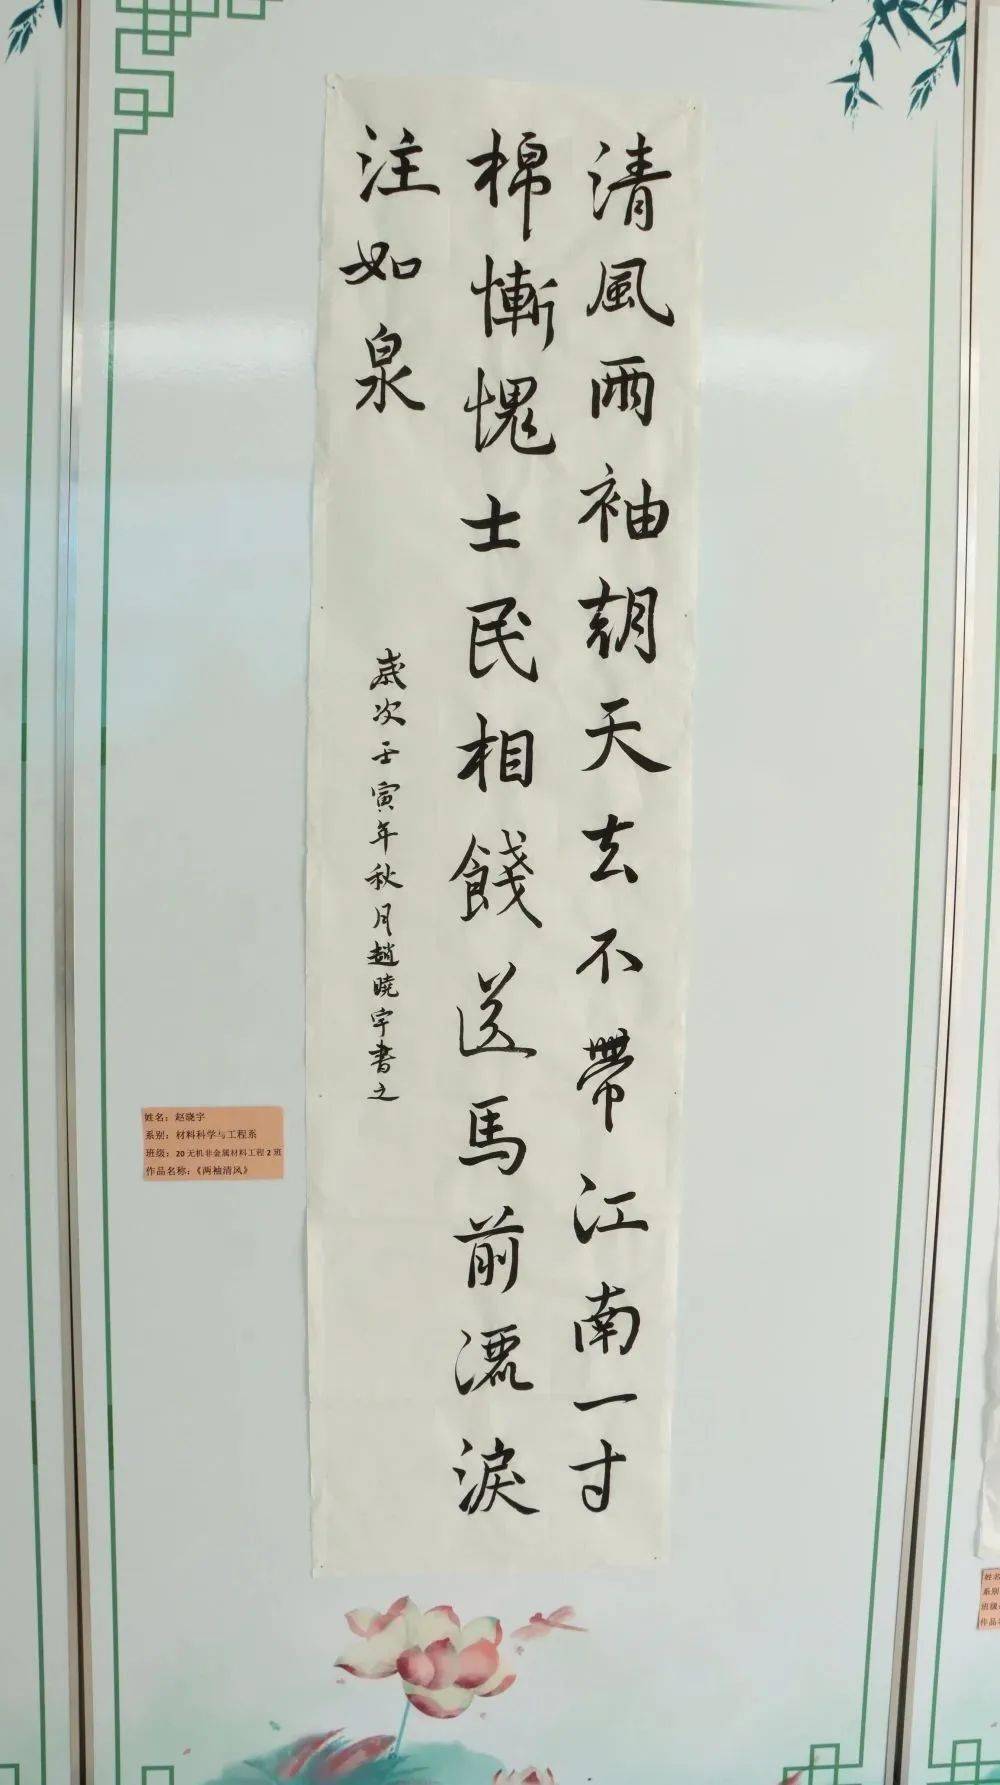 清風兩袖朝天去不帶江南一寸
棉慚愧士民相餞送馬前灑淚
注如泉
歲次壬寅年秋月趙曉宇書之
姓名：赵晓宇
系别：材料科学与工程系
班级：20无机非金属材料工程2班
作品名称：《两袖清风》
姓名
系别
班级
作品